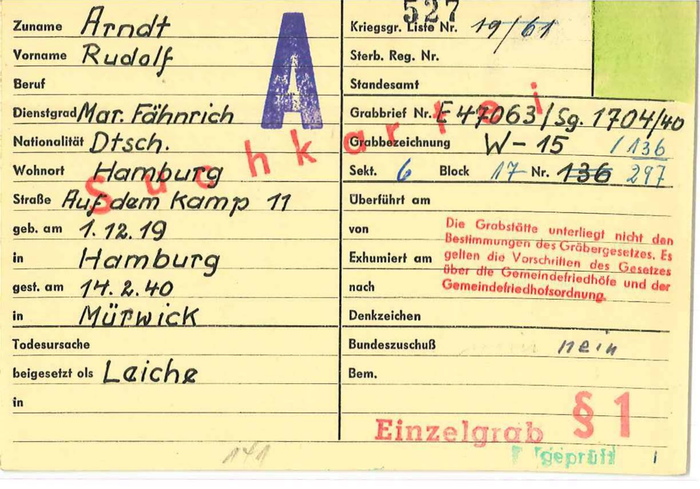 Zuname Arndt
Vorname Rudolf
Beruf
Dienstgrad Mar. Fähnrich
Nationalität Dtsch.
Wohnort Hamburg
Straße Auf dem Kamp 11
geb. am 1.12.19
in Hamburg
gest. am 14.2.40
in Mürwick
Todesursache
beigesetzt als Leiche
in
A
A
Suchkartei
527
Kriegsgr. Liste Nr. 19/61
Sterb. Reg. Nr.
Standesamt
Grabbrief Nr. E 47063/Sg. 1704/40
Grabbezeichnung W-15 /136
Sekt. 6 Block 17 Nr. 136 297
Überführt am
von
Exhumiert am
nach
Die Grabstätte unterliegt nicht den
Bestimmungen des Gräbergesetzes. Es
gelten die Vorschriften des Gesetzes
über die Gemeindefriedhöfe und der
Gemeindefriedhofsordnung.
Denkzeichen
Bundeszuschuß nein
Bem.
Einzelgrab § 1
geprüft